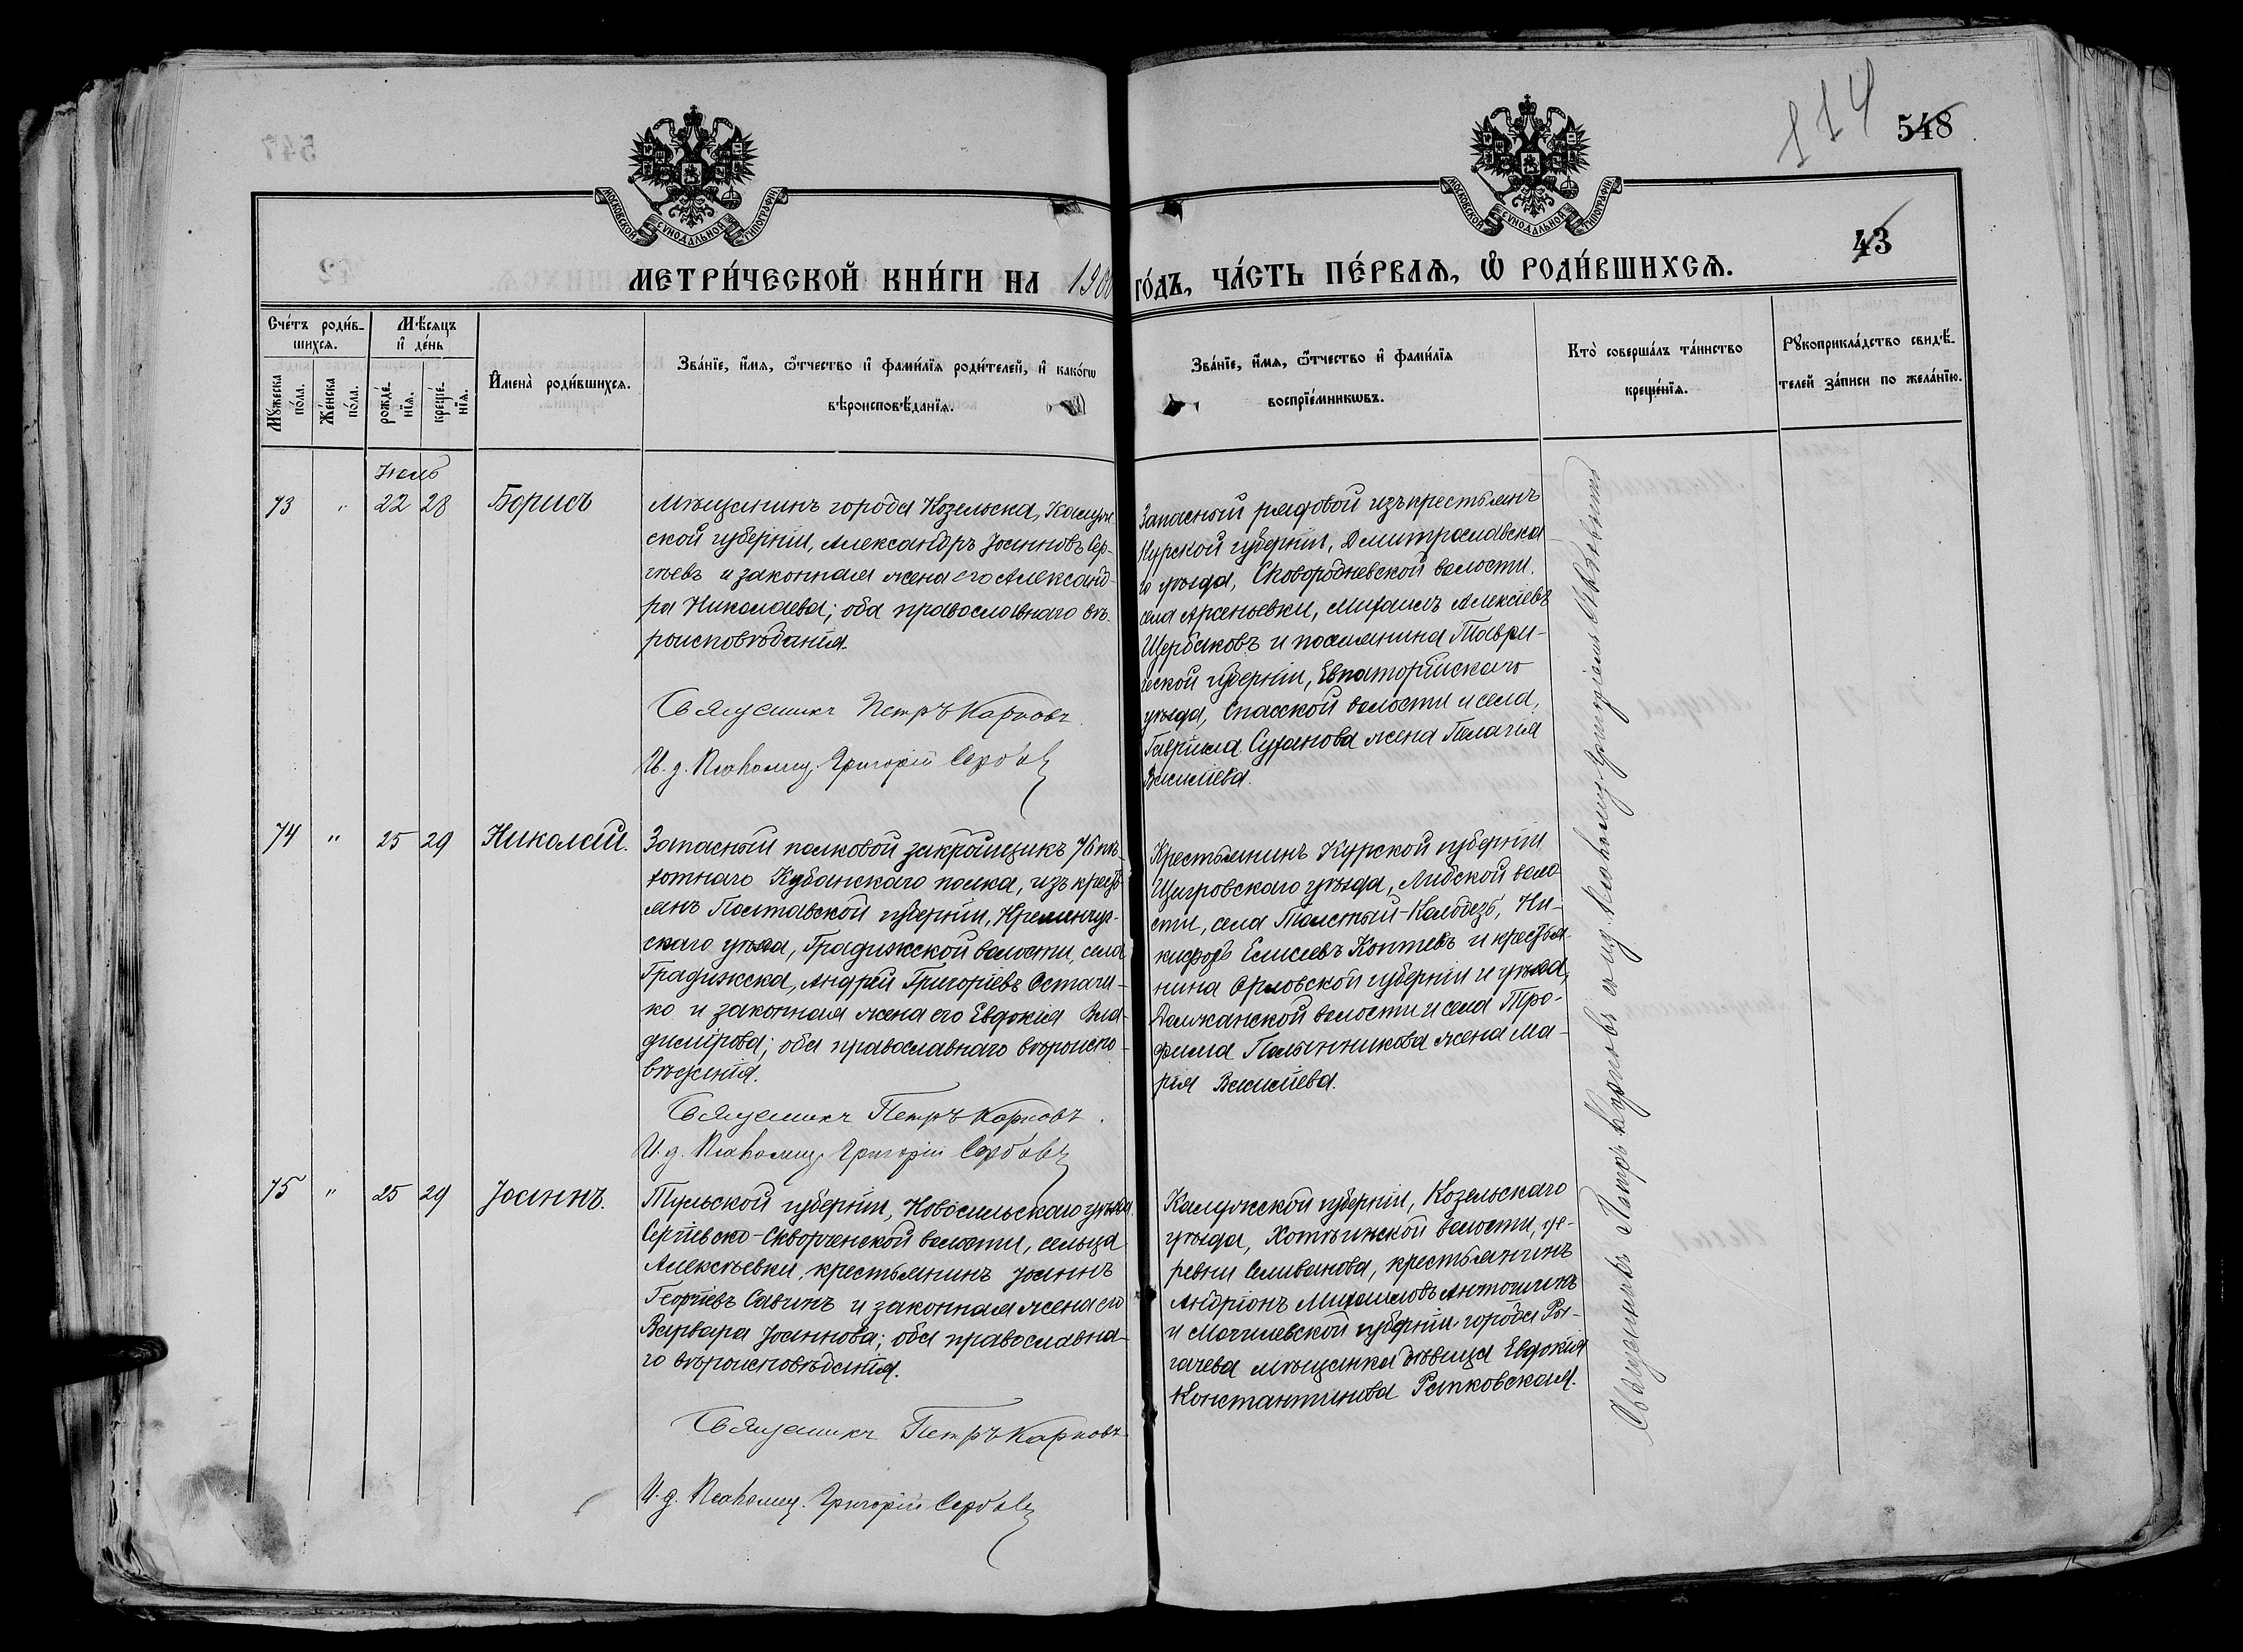 114
548
43
МОСКОВСКОЙ СѴНОДАЛЬНОЙ ТИПОГРАФІИ
МОСКОВСКОЙ СѴНОДАЛЬНОЙ ТИПОГРАФІИ
МЕТРИ́ЧЕСКОЙ КНИ́ГИ НА 1900 ГО́ДЪ, ЧА́СТЬ ПЕ́РВАѦ, Ѿ РОДИ́ВШИХСѦ.
Сче́тъ роди́в-
шихсѧ.
Мꙋ́жеска
по́ла.
Же́нска
по́ла.
Мѣ́сѧцъ
и҆ де́нь
рожде́-
нїѧ.
креще́-
нїѧ.
И҆мена̀ роди́вшихсѧ.
Зва́нїе, и҆́мѧ, ѻ҆́тчество и҆ фами́лїѧ роди́телей, и҆ како́гѡ
вѣроисповѣ́данїѧ.
Зва́нїе, и҆́мѧ, ѻ҆́тчество и҆ фами́лїѧ
воспрїе́мникѡвъ.
Кто̀ соверша́лъ та́инство
креще́нїѧ.
Рꙋкоприкла́дство свидѣ́-
телей за́писи по жела́нїю.
Іюль
73 " 22 28 Борисъ
Мѣщанинъ города Козельска, Калуж-
ской губерніи, Александръ Іоанновъ Сер-
гѣевъ и законная жена его Александ-
ра Николаева; оба православнаго вѣ-
роисповѣданія.
Священникъ Петръ Карповъ.
И. д. Псаломщ. Григорій Сербовъ
Запасный рядовой изъ крестьянъ
Курской губерніи, Дмитрославска
го уѣзда, Сковородневской волости.
села Арсеньевки, Михаилъ Алексіевъ
Щербаковъ и поселянина Таври-
ческой губерніи, Евпаторійскаго
уѣзда, Спасской волости и села,
Гавріила Суханова жена Пелагія
Василіева.
74 " 25 29 Николай.
Запасный полковой закройщикъ 76 пѣ-
хотнаго Кубанскаго полка, изъ кресть
янъ Полтавской губерніи, Кременчуг-
скаго уѣзда, Градижской волости, села
Градижска, Андрей Григоріевъ Остачи-
ко и законная жена его Евдокія Вла-
димірова; оба православнаго вѣроиспо-
вѣданія.
Священникъ Петръ Карповъ.
И. д. Псаломщ. Григорій Сербовъ
Крестьянинъ Курской губерніи
Щигровскаго уѣзда, Липской воло
сти, села Толстый-Колодезь, Ни-
кифоръ Елисеевъ Коптевъ и крестья-
нина Орловской губерніи и уѣзда,
Должанской волости и села Тро-
фима Полынникова жена Ма-
рія Василіева.
75 " 25 29 Іоаннъ.
Тульской губерніи, Новосильскаго уѣзда
Сергіевско-Скворченской волости, сельца
Алексѣевки, крестьянинъ Іоаннъ
Георгіевъ Савинъ и законная жена его
Варвара Іоаннова; оба православна-
го вѣроисповѣданія.
Священникъ Петръ Карповъ
И. д. Псаломщ. Григорій Сербовъ
Калужской губерніи, Козельскаго
уѣзда, Хотьинской волости, де-
ревни Селиванова, крестьянинъ
Андріонъ Михаиловъ Антошинъ
и Могилевской губерніи города Ро-
гачева мѣщанка дѣвица Евдокія
Константинова Рапковская.
Священникъ Петръ Карповъ съ и.д. Псаломщ. Григоріемъ Сербовымъ